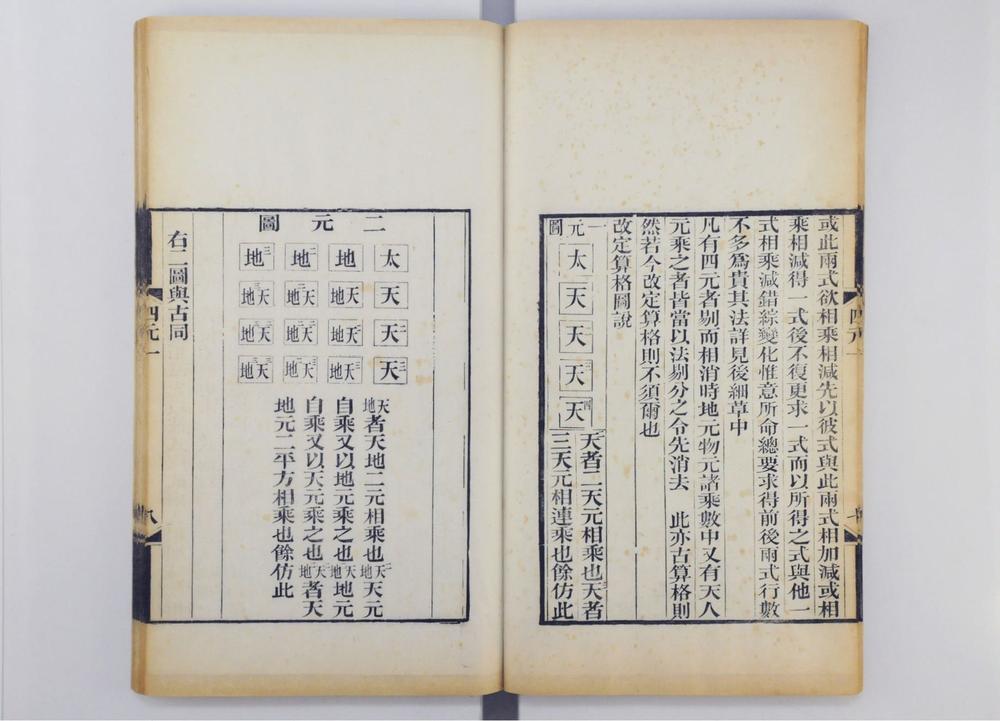 或此兩式欲相乘相減先以彼式與此兩式相加減或相
乘相減得一式後不復更求一式而以所得之式與他一
式相乘減錯綜變化惟意所命總要求得前後兩式行數
不多爲貴其法詳見後細草中
凡有四元者剔而相消時地元物元諸乘數中又有天人
元乘之者皆當以法剔分之令先消去 此亦古算格則
然若今改定算格則不須爾也
改定算格圖說
一元圖
太
天
天二
天三
天四
天二者二天元相乘也天三者
三天元相連乘也餘仿此
四元一
二元圖
太 地 地二 地三
天 天地 天地二 天地三
天二 天二地 天二地二 天二地三
天三 天三地 天三地二 天三地三
天地者天地二元相乘也天二地天元
自乘又以地元乘之也天地二地元
自乘又以天元乘之也天二地二者天
地元二平方相乘也餘仿此
右二圖與古同
四元一
八